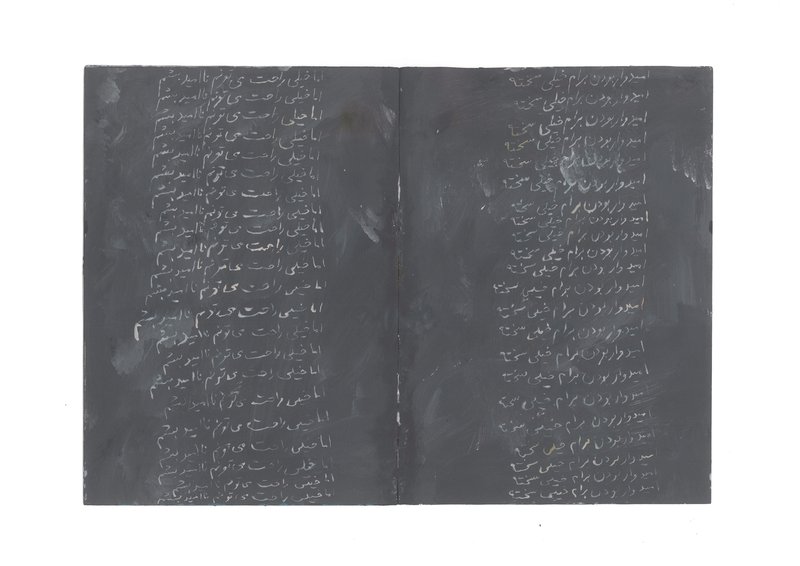 امیدوار بودن برام خیلی سخته
امیدوار بودن برام خیلی سخته
امیدوار بودن برام خیلی سخته
امیدوار بودن برام خیلی سخته
امیدوار بودن برام خیلی سخته
امیدوار بودن برام خیلی سخته
امیدوار بودن برام خیلی سخته
امیدوار بودن برام خیلی سخته
امیدوار بودن برام خیلی سخته
امیدوار بودن برام خیلی سخته
امیدوار بودن برام خیلی سخته
امیدوار بودن برام خیلی سخته
امیدوار بودن برام خیلی سخته
امیدوار بودن برام خیلی سخته
امیدوار بودن برام خیلی سخته
امیدوار بودن برام خیلی سخته
امیدوار بودن برام خیلی سخته
امیدوار بودن برام خیلی سخته
امیدوار بودن برام خیلی سخته
امیدوار بودن برام خیلی سخته
امیدوار بودن برام خیلی سخته
امیدوار بودن برام خیلی سخته
اما خیلی راحت می تونم ناامید بشم
اما خیلی راحت می تونم ناامید بشم
اما خیلی راحت می تونم ناامید بشم
اما خیلی راحت می تونم ناامید بشم
اما خیلی راحت می تونم ناامید بشم
اما خیلی راحت می تونم ناامید بشم
اما خیلی راحت می تونم ناامید بشم
اما خیلی راحت می تونم ناامید بشم
اما خیلی راحت می تونم ناامید بشم
اما خیلی راحت می تونم ناامید بشم
اما خیلی راحت می تونم ناامید بشم
اما خیلی راحت می تونم ناامید بشم
اما خیلی راحت می تونم ناامید بشم
اما خیلی راحت می تونم ناامید بشم
اما خیلی راحت می تونم ناامید بشم
اما خیلی راحت می تونم ناامید بشم
اما خیلی راحت می تونم ناامید بشم
اما خیلی راحت می تونم ناامید بشم
اما خیلی راحت می تونم ناامید بشم
اما خیلی راحت می تونم ناامید بشم
اما خیلی راحت می تونم ناامید بشم
اما خیلی راحت می تونم ناامید بشم